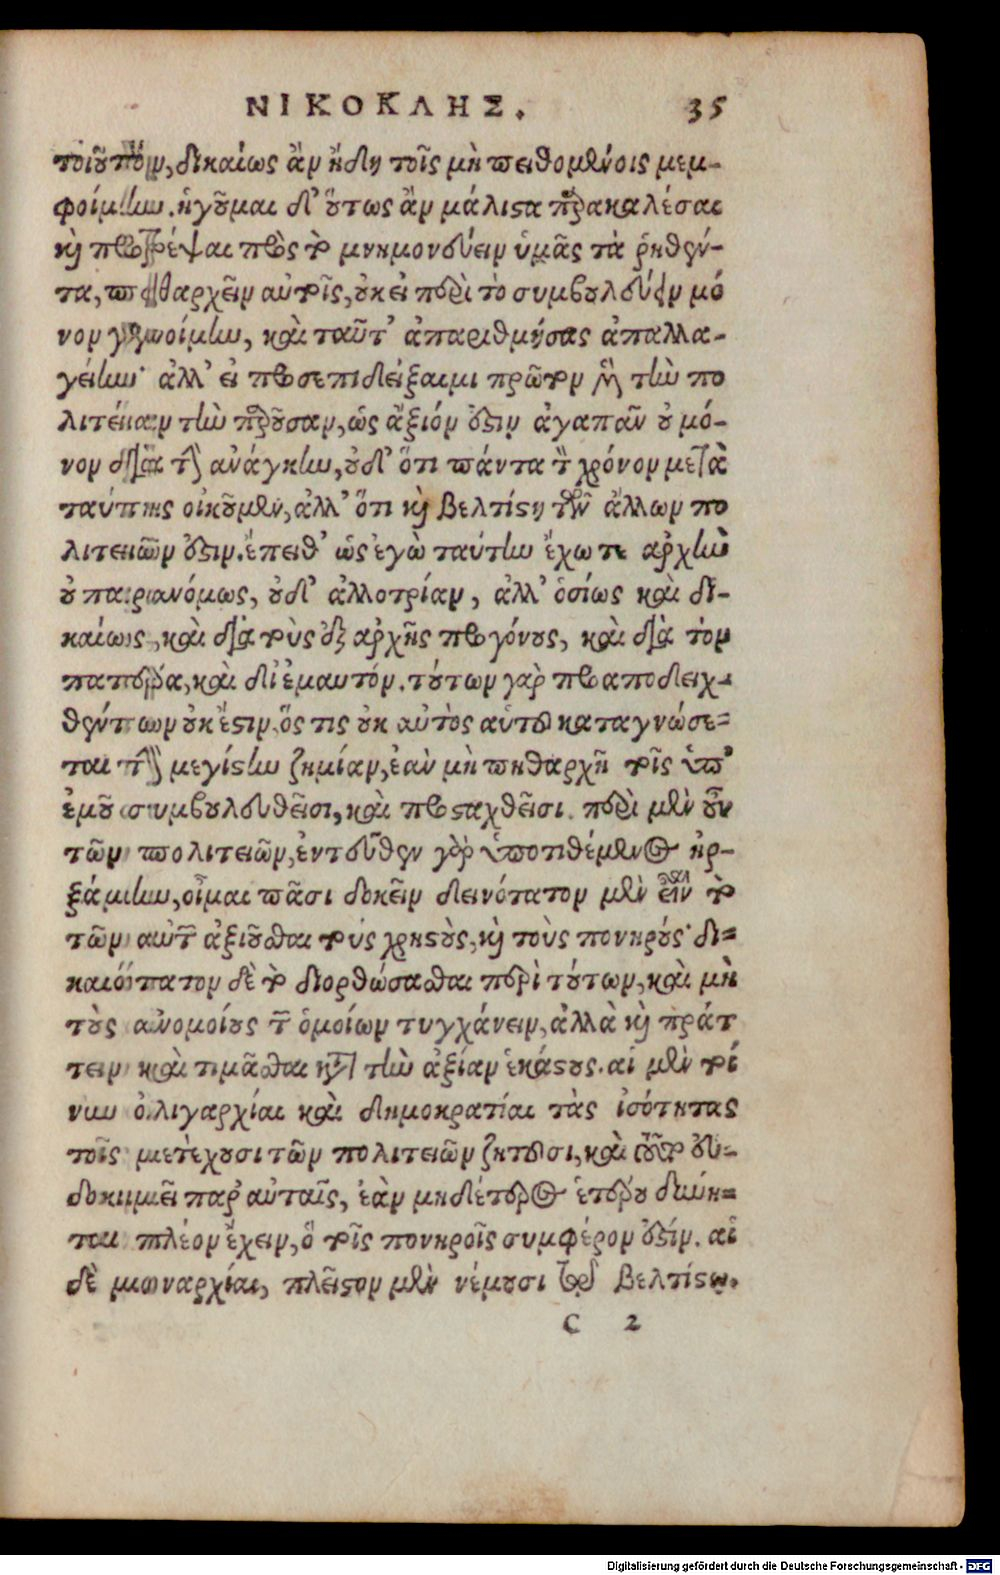 ΝΙΚΟΚΛΗΣ. 35
τοιούτων, δικαίως ἂν ἤδη τοῖς μὴ πειθομένοις μεμ-
φοίμην. ἡγοῦμαι δ' οὕτως ἂν μάλιστα παρακαλέσαι
καὶ προτρέψαι πρὸς τὸ μνημονεύειν ὑμᾶς τὰ ῥηθέν-
τα, πειθαρχεῖν αὐτοῖς, οὐκ εἰ περὶ τὸ συμβουλεύειν μό
νον γενοίμην, καὶ ταῦτ' ἀπαριθμήσας ἀπαλλα-
γείην· ἀλλ' εἰ προσεπιδείξαιμι πρῶτον μὲν τὴν πο
λιτείαν τὴν παροῦσαν, ὡς ἄξιόν ἐστιν ἀγαπᾶν οὐ μό-
νον διὰ τὴν ἀνάγκην, οὐδ' ὅτι πάντα τὸν χρόνον μετὰ
ταύτης οἰκοῦμεν, ἀλλ' ὅτι καὶ βελτίστη τῶν ἄλλων πο
λιτειῶν ἐστιν. ἔπειθ' ὡς ἐγὼ ταύτην ἔχω τὴν ἀρχὴν
οὐ παρανόμως, οὐδ' ἀλλοτρίαν, ἀλλ' ὁσίως καὶ δι-
καίως, καὶ διὰ τοὺς ἐξ ἀρχῆς προγόνους, καὶ διὰ τὸν
πατέρα, καὶ δι' ἐμαυτόν. τούτων γὰρ προαποδειχ-
θέντων οὐκ ἔστιν, ὅς τις οὐκ αὐτὸς αὑτοῦ καταγνώσε-
ται τὴν μεγίστην ζημίαν, ἐὰν μὴ πειθαρχῇ τοῖς ὑπ'
ἐμοῦ συμβουλευθεῖσι, καὶ προσταχθεῖσι. περὶ μὲν οὖν
τῶν πολιτειῶν, ἐντεῦθεν γὰρ ὑποτιθέμενος ἠρ-
ξάμην, οἶμαι πᾶσι δοκεῖν δεινότατον μὲν εἶναι τὸ
τῶν αὐτῶν ἀξιοῦσθαι τοὺς χρηστοὺς, καὶ τοὺς πονηρούς· δι-
καιότατον δὲ τὸ διορθώσασθαι περὶ τούτων, καὶ μὴ
τοὺς ἀνομοίους τῶν ὁμοίων τυγχάνειν, ἀλλὰ καὶ πράτ
τειν καὶ τιμᾶσθαι κατὰ τὴν ἀξίαν ἑκάστους. αἱ μὲν τοί
νυν ὀλιγαρχίαι καὶ δημοκρατίαι τὰς ἰσότητας
τοῖς μετέχουσι τῶν πολιτειῶν ζητοῦσι, καὶ τοῦτο εὐ-
δοκιμεῖ παρ' αὐταῖς, ἐὰν μηδ' ἕτερος ἑτέρου δύνη-
ται πλέον ἔχειν, ὃ τοῖς πονηροῖς συμφέρον ἐστίν. αἱ
δὲ μοναρχίαι, πλεῖστον μὲν νέμουσι τῷ βελτίστῳ.
C 2
Digitalisierung gefördert durch die Deutsche Forschungsgemeinschaft - DFG